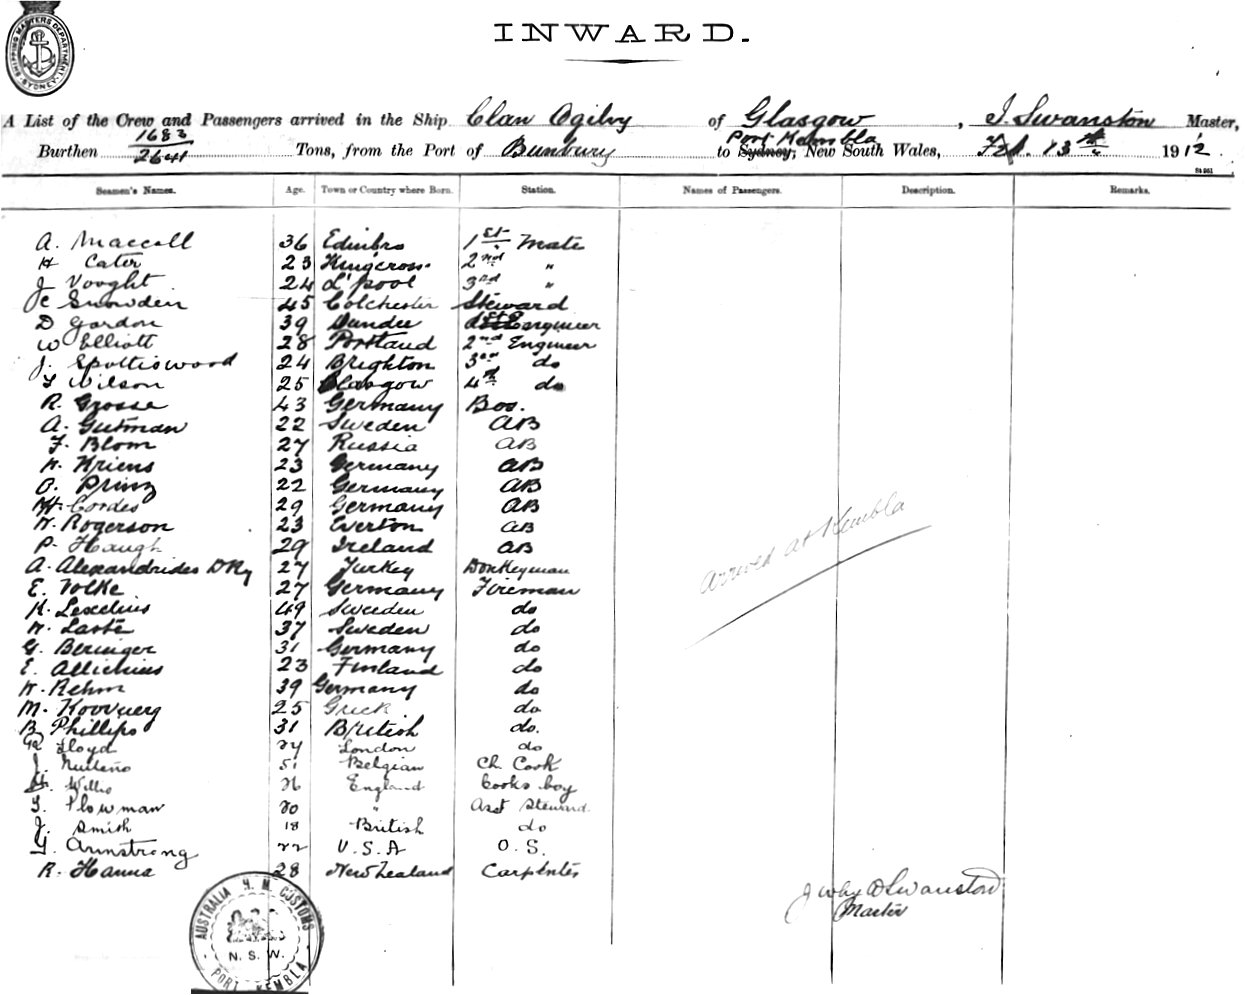 SHIPPING MASTERS DEPARTMENT SYDNEY
INWARD.
A List of the Crew and Passengers arrived in the Ship Clan Ogilvy of Glasgow, J. Swanston Master,
Burthen 1683 / 2641 Tons, from the Port of Bunbury to Sydney, Port Kembla New South Wales, Feb. 13th 1912.
St 951
Seamen's Names. Age. Town or Country where Born. Station. Names of Passengers. Description. Remarks.
A. Maccoll 36 Edinbro 1st Mate
H Cater 23 Kingcross. 2nd "
J Vooght 24 L'pool 3rd "
C Snowden 45 Colchester Steward
D Gordon 39 Dundee 1st Engineer
W Elliott 28 Portland 2nd Engineer
J. Spottiswood 24 Brighton 3rd do
T Wilson 25 Glasgow 4th do
R. Grosse 43 Germany Bos.
A. Gutman 22 Sweden AB
F. Blom 27 Russia AB
W. Kriens 23 Germany AB
O. Prinz 22 Germany AB
H. Cordes 29 Germany AB
W. Rogerson 23 Everton AB
P. Haugh 29 Ireland AB
A. Alexandrides DKy 27 Turkey Donkeyman
E. Volke 27 Germany Fireman
K. Lexelius 49 Sweeden do
W. Laste 37 Sweden do
G. Beringer 31 Germany do
E. 23 Finland do
W. Rehm 39 Germany do
M. 25 Greek do
B Phillips 31 British do.
R Lloyd 24 London do
J. 51 Belgian Ch. Cook
H. Willis 26 England Cooks boy
T. Plowman 20 " Asst Steward.
J. Smith 18 British do
G. Armstrong 22 U.S.A O.S.
R. Hanna 28 New Zealand Carpenter
arrived at Kembla
Swanston
Master
AUSTRALIA H. M. CUSTOMS
N. S. W.
PORT KEMBLA